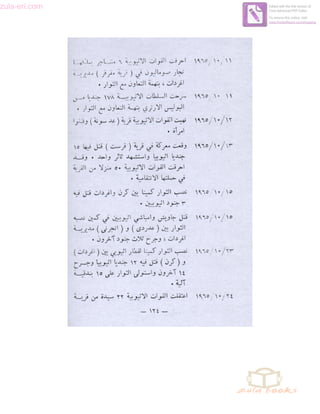 zula-eri.com
Edited with the trial version of
Foxit Advanced PDF Editor
To remove this notice, visit:
www.foxitsoftware.com/shopping
١٩٦٥/١٠/١١ احرقت القوات الاثيوبية ٦ متاجر يملكها
تجار صوماليون في ( قرية مفرقر ) مديرية
اغردات ، بتهمة التعاون مع الثوار .
١٩٦٥/١٠/١٩ سرحت السلطات الاثيوبية ١٧٨ جنديا من
البوليس الارتري بتهمة التعاون مع الثوار .
١٩٦٥/١٠/١٢ نهبت القوات الاثيوبية قرية ( عد سونة ) وقتلوا
امرأة .
١٩٦٥/١٠/١٣ وقعت معركة في قرية ( قرست ) قتل فيها ١٥
جنديا اثيوبيا واستشهد ثائر واحد . وقد
احرقت القوات الاثيوبية ٥٠ منزلا من القرية
في حملتها الانتقامية .
١٩٦٥/١٠/١٥ نصب الثوار كمينا بين كرن واغردات قتل فيه
٣ جنود اثيوبيين .
١٩٦٥/١٠/١٥ قتل جاويش وامباشي اثيوبيين في كمين نصبه
الثوار بين ( عدردي ) و ( انجرني ) مديرية
اغردات ، وجرح ثلاث جنود آخرون .
١٩٦٥/١٠/٢٣ نصب الثوار كمينا لقطار اثيوبي بين ( اغردات )
و ( كرن ) قتل فيه ١٢ جنديا اثيوبيا وجرح
١٤ آخرون واستولى الثوار على ١٥ بندقية
آلية .
١٩٦٥/١٠/٢٤ اعتقلت القوات الاثيوبية ٢٢ سيدة من قرية
— ١٢٤ —
zula books